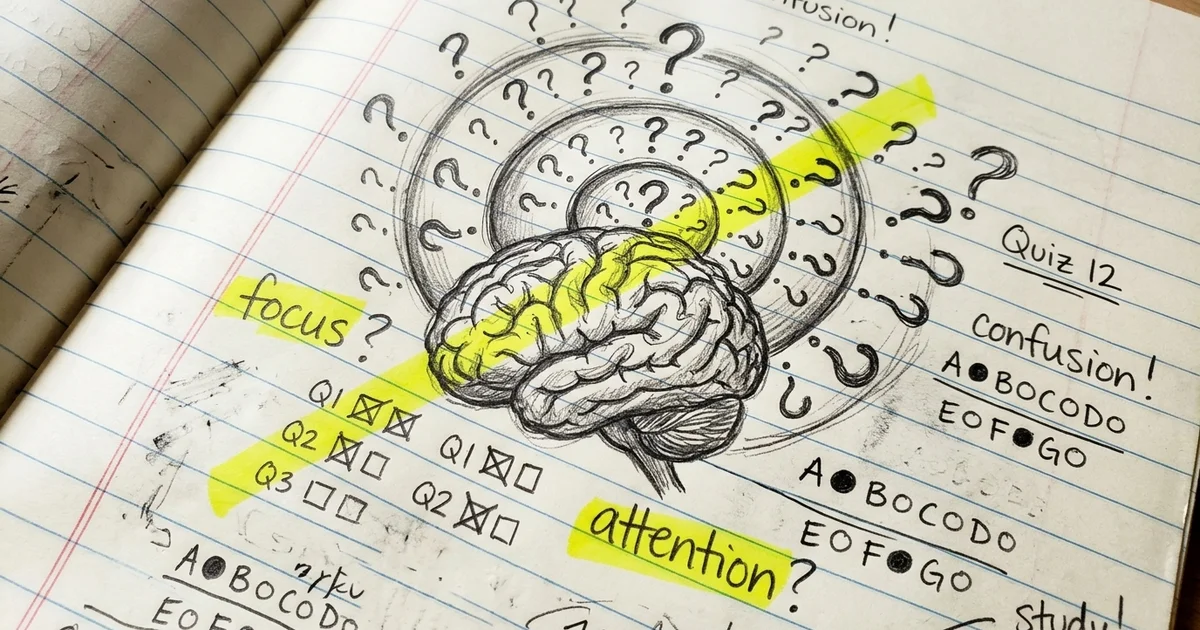 confusion!
Quiz 12
focus?
confusion!
A●BOCODO
EOF●GO
Q1 ☒☒
Q2 ☒☐
Q3 ☐☐
Q1 ☒☐
Q2 ☒☐
A●BOCODO
EOF●GO
attention?
A●BOCODO
EOF●GO
study!